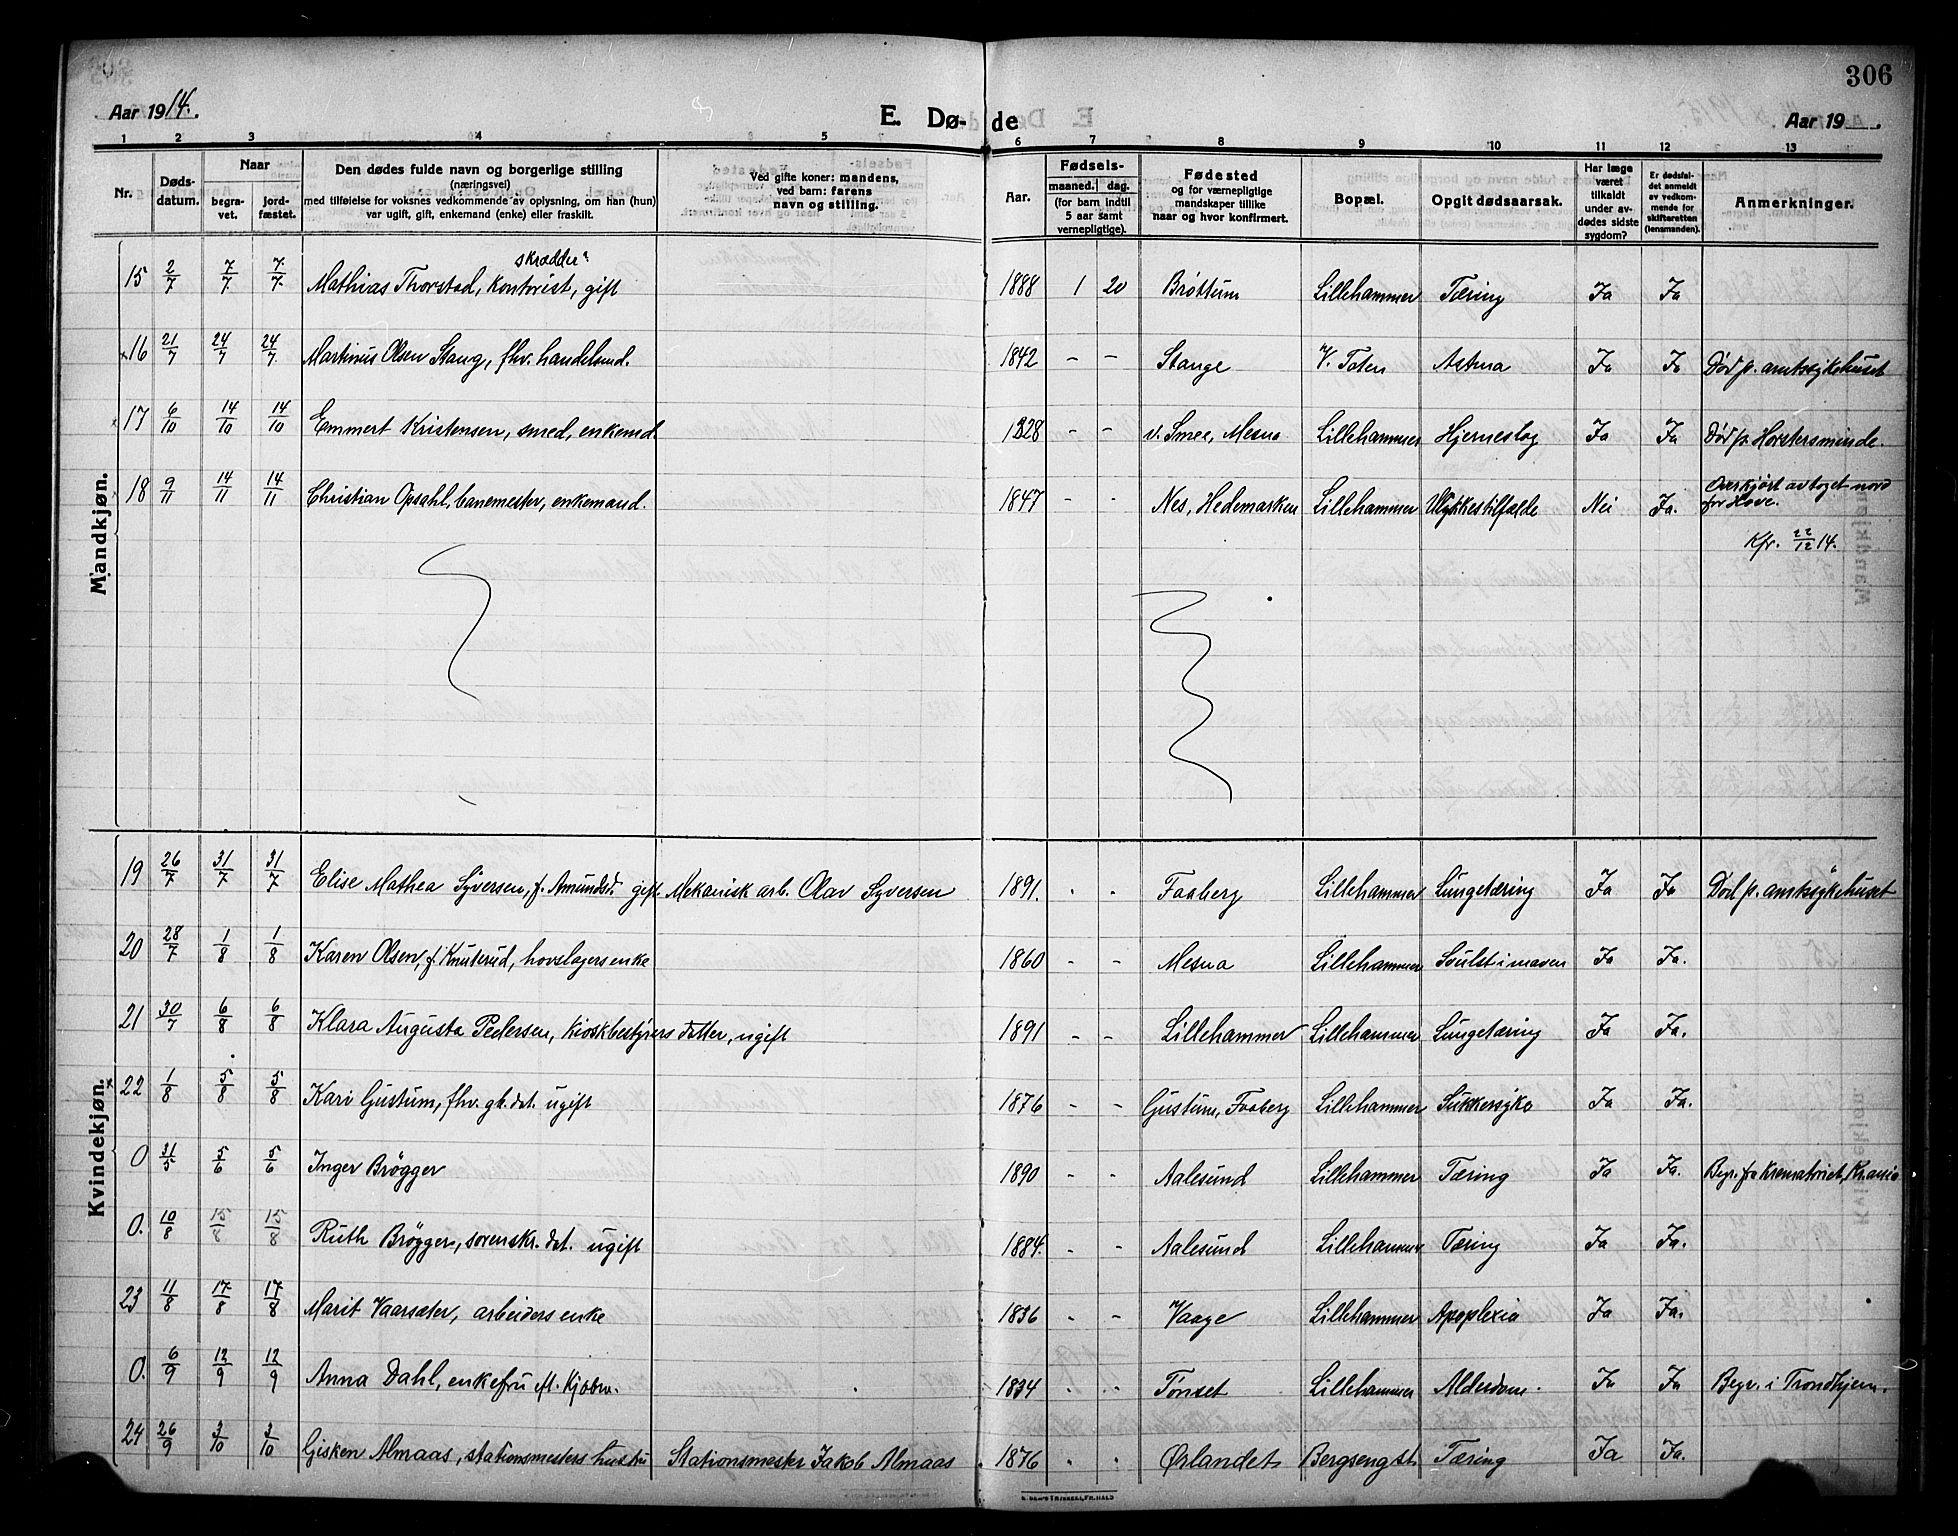 306
Aar 1914.
E. Døde
Aar 19
1 2 3 4 5 6 7 8 9 10 11 12 13
Nr.
Dødsdatum.
Naar
begravet.
jordfæstet.
Den dødes fulde navn og borgerlige stilling
(næringsvei)
med tilføielse for voksnes vedkommende av oplysning, om han (hun)
var ugift, gift, enkemand (enke) eller fraskilt.
Ved gifte koner: mandens,
ved barn: farens
navn og stilling.
Aar.
Fødsels-
maaned. dag.
(for barn indtil
5 aar samt
vernepligtige).
Fødested
og for værnepligtige
mandskaper tillike
naar og hvor konfirmert.
Bopæl.
Opgit dødsaarsak.
Har læge
været
tilkaldt
under avdødes sidste
sygdom?
Er dødsfaldet anmeldt
av vedkommende for
skifteretten
(lensmanden).
Anmerkninger.
Mandkjøn.
skrædder
15 2/7 7/7 7/7 Mathias Thorstad, kontorist, gift 1888 1 20 Brøttum Lillehammer Tæring Ja Ja
16 21/7 24/7 24/7 Martinus Olsen Stang, fhv. handelsmd. 1842 - - Stange V. Toten Astma Ja Ja Død p. amtssykehuset
17 6/10 14/10 14/10 Emmert Kristensen, smed, enkemd. 1828 - - Mesna Lillehammer Hjerneslag Ja Ja Død p.
18 9/11 14/11 14/11 Christian Opsahl, banemester, enkemand. 1847 - - Nes, Hedemarken Lillehammer Ulykkestilfælde Nei Ja. Overkjørt av toget nord
for Hove.
Kfr. 22/12 14.
Kvindekjøn.
19 26/7 31/7 31/7 Elise Mathea Syversen, f. Amundsd. gift Mekanisk arb. Olav Syversen 1891. - - Faaberg Lillehammer Lungetæring Ja Ja Død p. amtssykehuset
20 28/7 1/8 1/8 Karen Olsen, f. Knutsrud, hovslagers enke 1860 - - Mesna Lillehammer Svulst i maven Ja Ja.
21 30/7 6/8 6/8 Klara Augusta Pedersen, kioskbestyrers datter, ugift 1891 - - Lillehammer Lillehammer Lungetæring Ja Ja.
22 1/8 5/8 5/8 Kari Gustum, fhv. gb. dat. ugift 1876 - - Gustum, Faaberg Lillehammer Sukkersyke Ja Ja.
0 31/5 5/6 5/6 Inger Brøgger 1890 - - Aalesund Lillehammer Tæring Ja Ja. Begr. fra Krematoriet, Kr.ania
0. 10/8 15/8 15/8 Ruth Brøgger, sorenskr. dat. ugift 1884. - - Aalesund Lillehammer Tæring Ja Ja.
23 11/8 17/8 17/8 Marit Vaarsæter, arbeiders enke 1836 - - Vaage Lillehammer Apoplexia Ja Ja.
0. 6/9 12/9 12/9 Anna Dahl, enkefru 1834 - - Tønset Lillehammer Alderdom. Ja Ja Begr. i Trondhjem.
24 26/9 3/10 3/10 Gisken Almaas, stationsmesters hustru Stationsmester Jakob Almaas 1876 - - Ørlandet Bergsengst. Tæring Ja Ja.